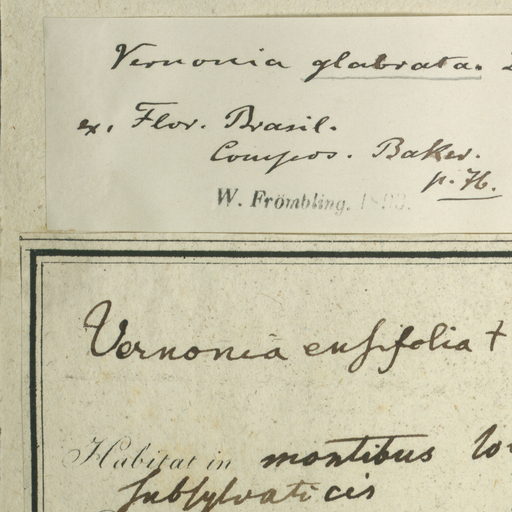 Vernonia glabrata.
ex. Flor. Brasil.
Compos. Baker.
W. Frömbling.
Vernonia ensifolia †
Habitat in montibus
subsylvaticis